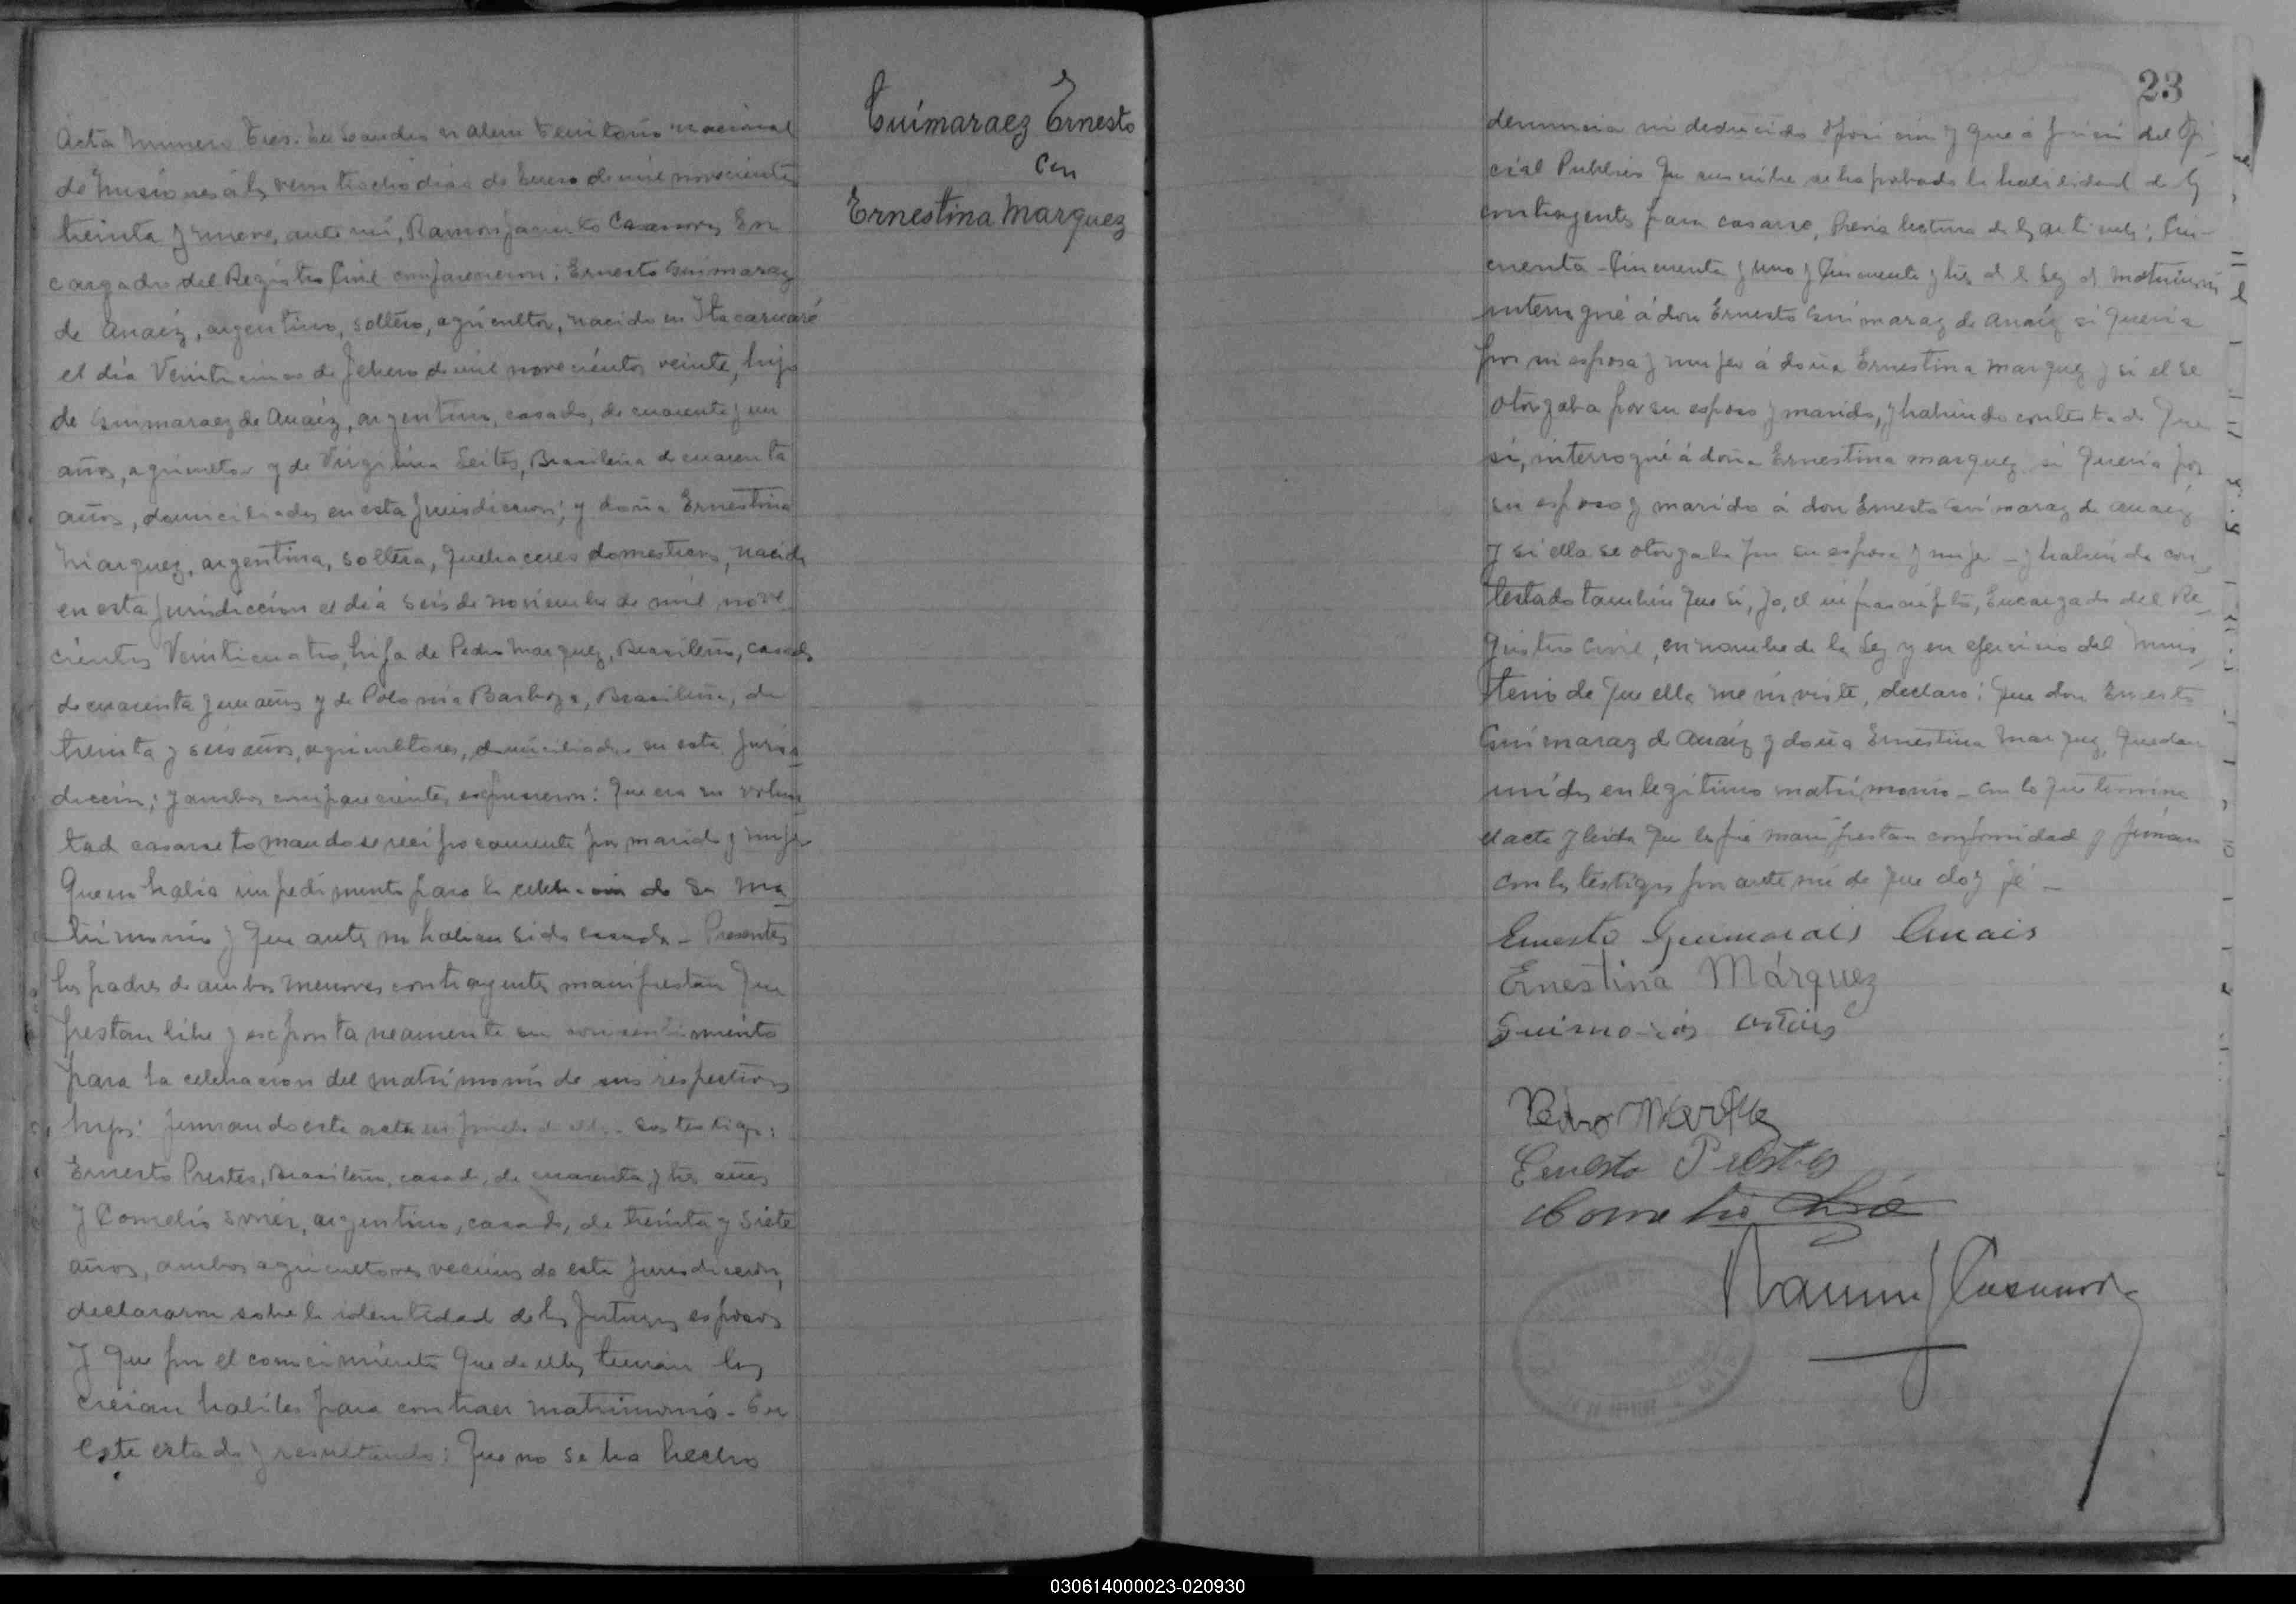 Acta Numero Tres. En Leandro n alem Territorio nacional
de Misiones á los veintiocho dias de Enero de mil novecientos
treinta y nueve, ante mi, Ramon Jacinto Casanova, En
cargado del Registro Civil comparecieron: Ernesto Guimaraez
de Anaéz, argentino, soltero, agricultor, nacido en Itacaruaré
el día Veinticinco de Febrero de mil novecientos veinte, hijo
de Guimaraez de Anaéz, argentino, casado, de cuarenta y un
años, agricultor y de Virgilina Leites, Brasileña de cuarenta
años, domiciliados en esta jurisdiccion; y doña Ernestina
Marquez, argentina, soltera, quehaceres domesticos, nacida
en esta jurisdiccion el día seis de noviembre de mil nove
cientos Veinticuatro, hija de Pedro Marquez, Brasileño, casado
de cuarenta y un años y de Polonia Barboza, Brasileña, de
treinta y seis años, agricultores, domiciliados en esta juris
diccion; y ambos comparecientes expusieron: Que era su volun
tad casarse tomandose reciprocamente por marido y mujer
Que no habia impedimento para la celebracion de su ma
trimonio y que antes no habian sido casados - Presentes
los padres de ambos menores contrayentes manifiestan que
prestan libre y espontaneamente su consentimiento
para la celebracion del matrimonio de sus respectivos
hijos: firmando este acta en prueba de ello - Los testigos:
Ernesto Prestes, Brasileño, casado, de cuarenta y tres años
y Cornelio argentino, casado, de treinta y siete
años, ambos agricultores vecinos de esta jurisdiccion,
declararon sobre la identidad de los futuros esposos
y que por el conocimiento que de ellos tenian los
creian habiles para contraer matrimonio - En
este estado y resultando: Que no se ha hecho
Guimaraez Ernesto
con
Ernestina Marquez
23
denuncia ni deducido oposicion y que á juicio del Ofi
cial Publico que suscribe se ha probado la habilidad de los
contrayentes para casarse, Previa lectura de los articulos: Cin-
cuenta - Cincuenta y uno y Cincuenta y tres de la Ley de Matrimonio
interrogué á don Ernesto Guimaraez de Anaéz si queria
por su esposa y mujer á doña Ernestina Marquez y si el se
otorgaba por su esposo y marido, y habiendo contestado que
sí, interrogué á doña Ernestina Marquez si queria por
su esposo y marido á don Ernesto Guimaraez de Anaéz
y si ella se otorgaba por su esposa y mujer - y habiendo con
testado tambien que sí, yo, el infrascripto, Encargado del Re
gistro Civil, en nombre de la Ley y en ejercicio del Minis
terio de que ella me inviste, declaro: que don Ernesto
Guimaraez de Anaéz y doña Ernestina Marquez, quedan
unidos en legítimo matrimonio - con lo que termina
el acta y leida que les fue manifiestan conformidad y firman
con los testigos por ante mi de que doy fé -
Ernesto Guimaraes Anais
Ernestina Márquez
Pedro Marquez
Ernesto Prestes
Cornelio
Ramon J Casanova
030614000023-020930